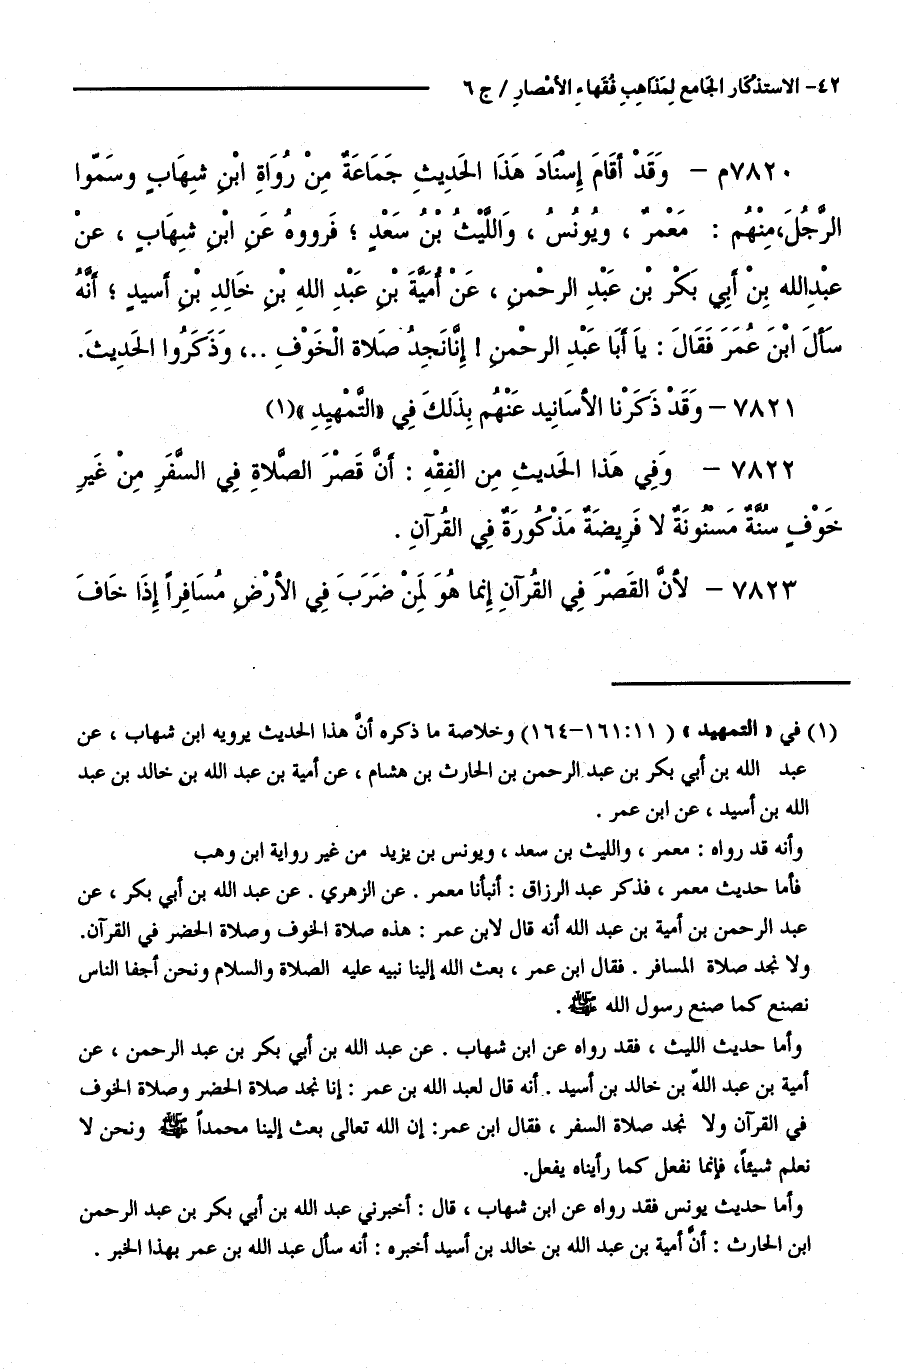 ٤٢- الاستذكار الجامع لِمَذَاهِبِ فُقَهاءِ الأمْصارِ / ج ٦
٧٨٢٠م – وَقَدْ أقَامَ إِسْنَادَ هَذَا الحَدِيثِ جَمَاعَةٌ مِنْ رُوَاةِ ابْنِ شِهَابٍ وسَمّوا
الرَّجُلَ،مِنْهُم : مَعْمَرٌ ، ويُونُسُ ، وَاللَّيْثُ بْنُ سَعْدٍ ؛ فَرووهُ عَنِ ابْنِ شِهَابٍ ، عَنْ
عبْدِالله بِنْ أَبِي بَكْرِ بْنِ عَبْدِ الرحْمنِ ، عَنْ أُمَيَّةَ بْنِ عَبْدِ اللهِ بْنِ خَالِدِ بْنِ أَسيدٍ ؛ أنَّهُ
سَأَلَ ابْنَ عُمَرَ فَقَالَ : يا أَبَا عَبْدِ الرحْمنِ ! إِنَّانَجِدُ صَلَاةَ الْخَوْفِ ..، وَذَكَرُوا الحَدِيثَ.
٧٨٢١ – وَقَدْ ذَكَرْنا الأسَانِيد عَنْهُم بِذَلكَ فِي «التَّمْهِيدِ »(١)
٧٨٢٢ – وَفِي هَذا الحَديثِ مِن الفِقْهِ : أنَّ قَصْرَ الصَّلاةِ فِي السَّفَرِ مِنْ غَيرِ
خَوْفٍ سُنَّةٌ مَسْنُونَةٌ لا فَرِيضَةٌ مَذْكُورَةٌ فِي القُرآنِ .
٧٨٢٣ – لأنَّ القَصْرَ فِي القُرآنِ إِنما هُوَ لِمَنْ ضَرَبَ فِي الأرْضِ مُسَافِراً إِذَا خَافَ
(١) في « التمهيد » ( ١١:١٦١–١٦٤) وخلاصة ما ذكره أنَّ هذا الحديث يرويه ابن شهاب ، عن
عبد الله بن أبي بكر بن عبد الرحمن بن الحارث بن هشام ، عن أمية بن عبد الله بن خالد بن عبد
الله بن أسيد ، عن ابن عمر .
وأنه قد رواه : معمر ، والليث بن سعد ، ويونس بن يزيد من غير رواية ابن وهب
فأما حديث معمر ، فذكر عبد الرزاق : أنبأنا معمر . عن الزهري . عن عبد الله بن أبي بكر ، عن
عبد الرحمن بن أمية بن عبد الله أنه قال لابن عمر : هذه صلاة الخوف وصلاة الحضر في القرآن.
ولا نجد صلاة المسافر . فقال ابن عمر ، بعث الله إلينا نبيه عليه الصلاة والسلام ونحن أجفا الناس
نصنع كما صنع رسول الله ﷺ .
وأما حديث الليث ، فقد رواه عن ابن شهاب . عن عبد الله بن أبي بكر بن عبد الرحمن ، عن
أمية بن عبد اللهّ بن خالد بن أسيد . أنه قال لعبد الله بن عمر : إنا نجد صلاة الحضر وصلاة الخوف
في القرآن ولا نجد صلاة السفر ، فقال ابن عمر: إن الله تعالى بعث إلينا محمداً ﷺ ونحن لا
نعلم شيئاً، فإنما نفعل كما رأيناه يفعل.
وأما حديث يونس فقد رواه عن ابن شهاب ، قال : أخبرني عبد الله بن أبي بكر بن عبد الرحمن
ابن الحارث : أنَّ أمية بن عبد الله بن خالد بن أسيد أخبره : أنه سأل عبد الله بن عمر بهذا الخبر .